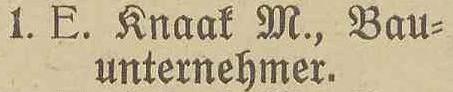 1. E. Knaak M., Bau-
unternehmer.